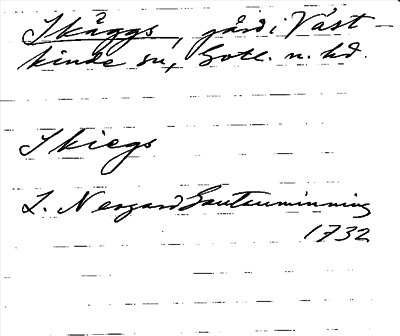 Skäggs, gård i Väst-
kinde sn, Gotl. n. hd.
Skiegs
L. Nergard Gautauminning
1732